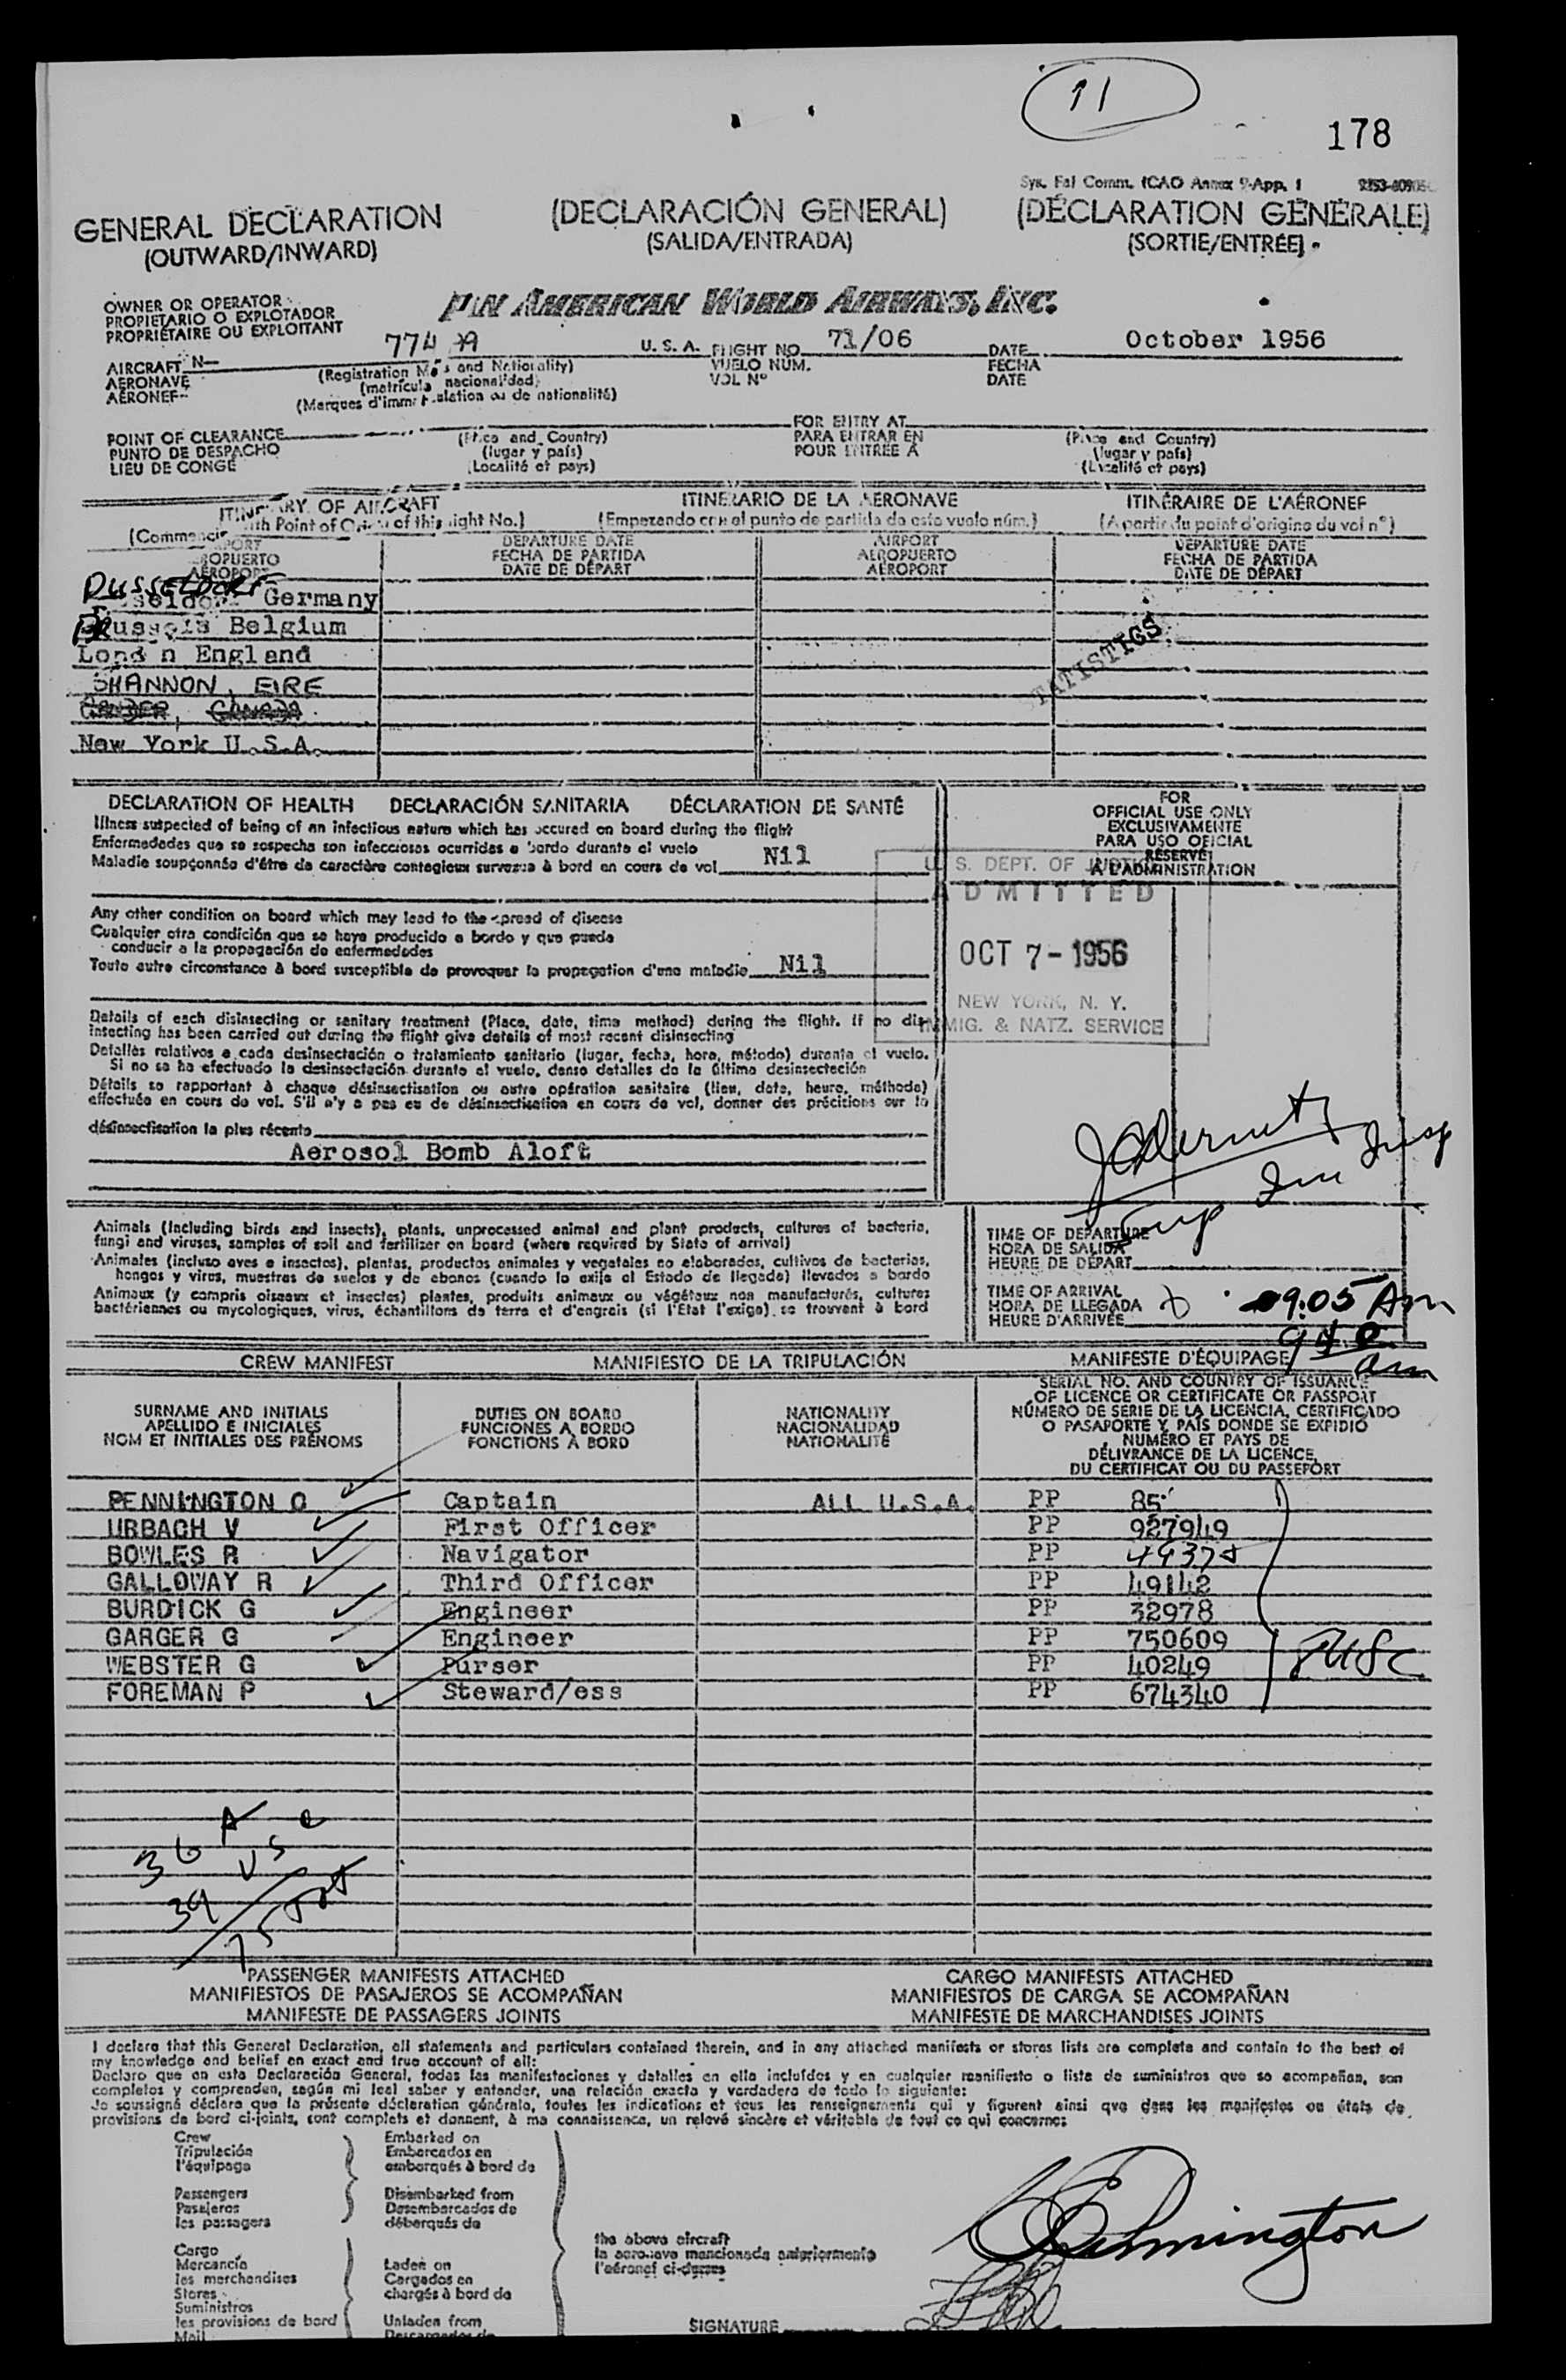 11
178
Sys. Fal Comm. ICAO Annex 9-App. 1
GENERAL DECLARATION
(OUTWARD/INWARD)
(DECLARACIÓN GENERAL)
(SALIDA/ENTRADA)
(DÉCLARATION GÉNÉRALE)
(SORTIE/ENTRÉE)
OWNER OR OPERATOR
PROPIETARIO O EXPLOTADOR
PROPRIÉTAIRE OU EXPLOITANT
PAN AMERICAN WORLD AIRWAYS, INC.
AIRCRAFT N-
AERONAVE
AÉRONEF
774
U. S. A.
(Registration Marks and Nationality)
(matrícula nacionalidad)
(Marques d'immatriculation ou de nationalité)
FLIGHT NO. 71/06
VUELO NÚM.
VOL Nº
DATE October 1956
FECHA
DATE
POINT OF CLEARANCE
PUNTO DE DESPACHO
LIEU DE CONGÉ
(Place and Country)
(lugar y país)
(Localité et pays)
FOR ENTRY AT
PARA ENTRAR EN
POUR ENTRÉE A
(Place and Country)
(lugar y país)
(Localité et pays)
ITINERARY OF AIRCRAFT
(Commencing with Point of Origin of this Flight No.)
ITINERARIO DE LA AERONAVE
(Empezando con el punto de partida de este vuelo núm.)
ITINÉRAIRE DE L'AÉRONEF
(A partir du point d'origine du vol nº)
AIRPORT
AEROPUERTO
AÉROPORT
DEPARTURE DATE
FECHA DE PARTIDA
DATE DE DÉPART
AIRPORT
AEROPUERTO
AÉROPORT
DEPARTURE DATE
FECHA DE PARTIDA
DATE DE DÉPART
DUSSELDORF
Germany
Brussels Belgium
London England
SHANNON, EIRE
GANDER, CANADA
New York U.S.A.
STATISTICS
DECLARATION OF HEALTH DECLARACIÓN SANITARIA DÉCLARATION DE SANTÉ
Illness suspected of being of an infectious nature which has occured on board during the flight
Enfermedades que se sospecha son infecciosas ocurridas a bordo durante el vuelo
Maladie soupçonnée d'être de caractère contagieux survenue à bord en cours de vol Nil
Any other condition on board which may lead to the spread of disease
Cualquier otra condición que se haya producido a bordo y que pueda
conducir a la propagación de enfermedades
Toute autre circonstance à bord susceptible de provoquer la propagation d'une maladie Nil
Details of each disinsecting or sanitary treatment (Place, date, time method) during the flight. If no dis-
insecting has been carried out during the flight give details of most recent disinsecting
Detalles relativos a cada desinsectación o tratamiento sanitario (lugar, fecha, hora, método) durante el vuelo.
Si no se ha efectuado la desinsectación durante el vuelo, dense detalles de la última desinsectación
Détails se rapportant à chaque désinsectisation ou autre opération sanitaire (lieu, date, heure, méthode)
effectuée en cours de vol. S'il n'y a pas eu de désinsectisation en cours de vol, donner des précitions sur la
désinsectisation la plus récente
Aerosol Bomb Aloft
FOR
OFFICIAL USE ONLY
EXCLUSIVAMENTE
PARA USO OFICIAL
RÉSERVÉ
A L'ADMINISTRATION
U. S. DEPT. OF JUSTICE
ADMITTED
OCT 7 - 1956
NEW YORK, N. Y.
IMMIG. & NATZ. SERVICE
Imm Insp
Animals (including birds and insects), plants, unprocessed animal and plant products, cultures of bacteria,
fungi and viruses, samples of soil and fertilizer on board (where required by State of arrival)
Animales (incluso aves e insectos), plantas, productos animales y vegetales no elaborados, cultivos de bacterias,
hongos y virus, muestras de suelos y de abonos (cuando lo exija el Estado de llegada) llevados a bordo
Animaux (y compris oiseaux et insectes) plantes, produits animaux ou végétaux non manufacturés, cultures
bactériennes ou mycologiques, virus, échantillons de terre et d'engrais (si l'État l'exige) se trouvant à bord
TIME OF DEPARTURE
HORA DE SALIDA
HEURE DE DÉPART
TIME OF ARRIVAL
HORA DE LLEGADA
HEURE D'ARRIVÉE
9.05 Am
940 am
CREW MANIFEST
MANIFIESTO DE LA TRIPULACIÓN
MANIFESTE D'ÉQUIPAGE
SURNAME AND INITIALS
APELLIDO E INICIALES
NOM ET INITIALES DES PRÉNOMS
DUTIES ON BOARD
FUNCIONES A BORDO
FONCTIONS À BORD
NATIONALITY
NACIONALIDAD
NATIONALITÉ
SERIAL NO. AND COUNTRY OF ISSUANCE
OF LICENCE OR CERTIFICATE OR PASSPORT
NÚMERO DE SERIE DE LA LICENCIA, CERTIFICADO
O PASAPORTE Y PAÍS DONDE SE EXPIDIÓ
NUMÉRO ET PAYS DE
DÉLIVRANCE DE LA LICENCE,
DU CERTIFICAT OU DU PASSEPORT
PENNINGTON O Captain ALL U.S.A. PP 85
URBACH V First Officer PP 927949
BOWLES R Navigator PP
GALLOWAY R Third Officer PP 49142
BURDICK G Engineer PP 32978
GARGER G Engineer PP 750609
WEBSTER G Purser PP 40249
FOREMAN P Steward/ess PP 674340
36 A
39 USC
75 tot
PASSENGER MANIFESTS ATTACHED
MANIFIESTOS DE PASAJEROS SE ACOMPAÑAN
MANIFESTE DE PASSAGERS JOINTS
CARGO MANIFESTS ATTACHED
MANIFIESTOS DE CARGA SE ACOMPAÑAN
MANIFESTE DE MARCHANDISES JOINTS
I declare that this General Declaration, all statements and particulars contained therein, and in any attached manifests or stores lists are complete and contain to the best of
my knowledge and belief an exact and true account of all:
Declaro que en esta Declaración General, todas las manifestaciones y detalles en ella incluídos y en cualquier manifiesto o lista de suministros que se acompañan, son
completos y comprenden, según mi leal saber y entender, una relación exacta y verdadera de todo lo siguiente:
Je soussigné déclare que la présente déclaration générale, toutes les indications et tous les renseignements qui y figurent ainsi que dans les manifestes ou états de
provisions de bord ci-joints, sont complets et donnent, à ma connaissance, un relevé sincère et véritable de tout ce qui concerne:
Crew
Tripulación
l'équipage
Passengers
Pasajeros
les passagers
Cargo
Mercancía
les marchandises
Stores
Suministros
les provisions de bord
Mail
Embarked on
Embarcados en
embarqués à bord de
Disembarked from
Desembarcados de
débarqués de
Laden on
Cargados en
chargés à bord de
Unladen from
Descargados de
the above aircraft
la aeronave mencionada anteriormente
l'aéronef ci-dessus
SIGNATURE
Pennington